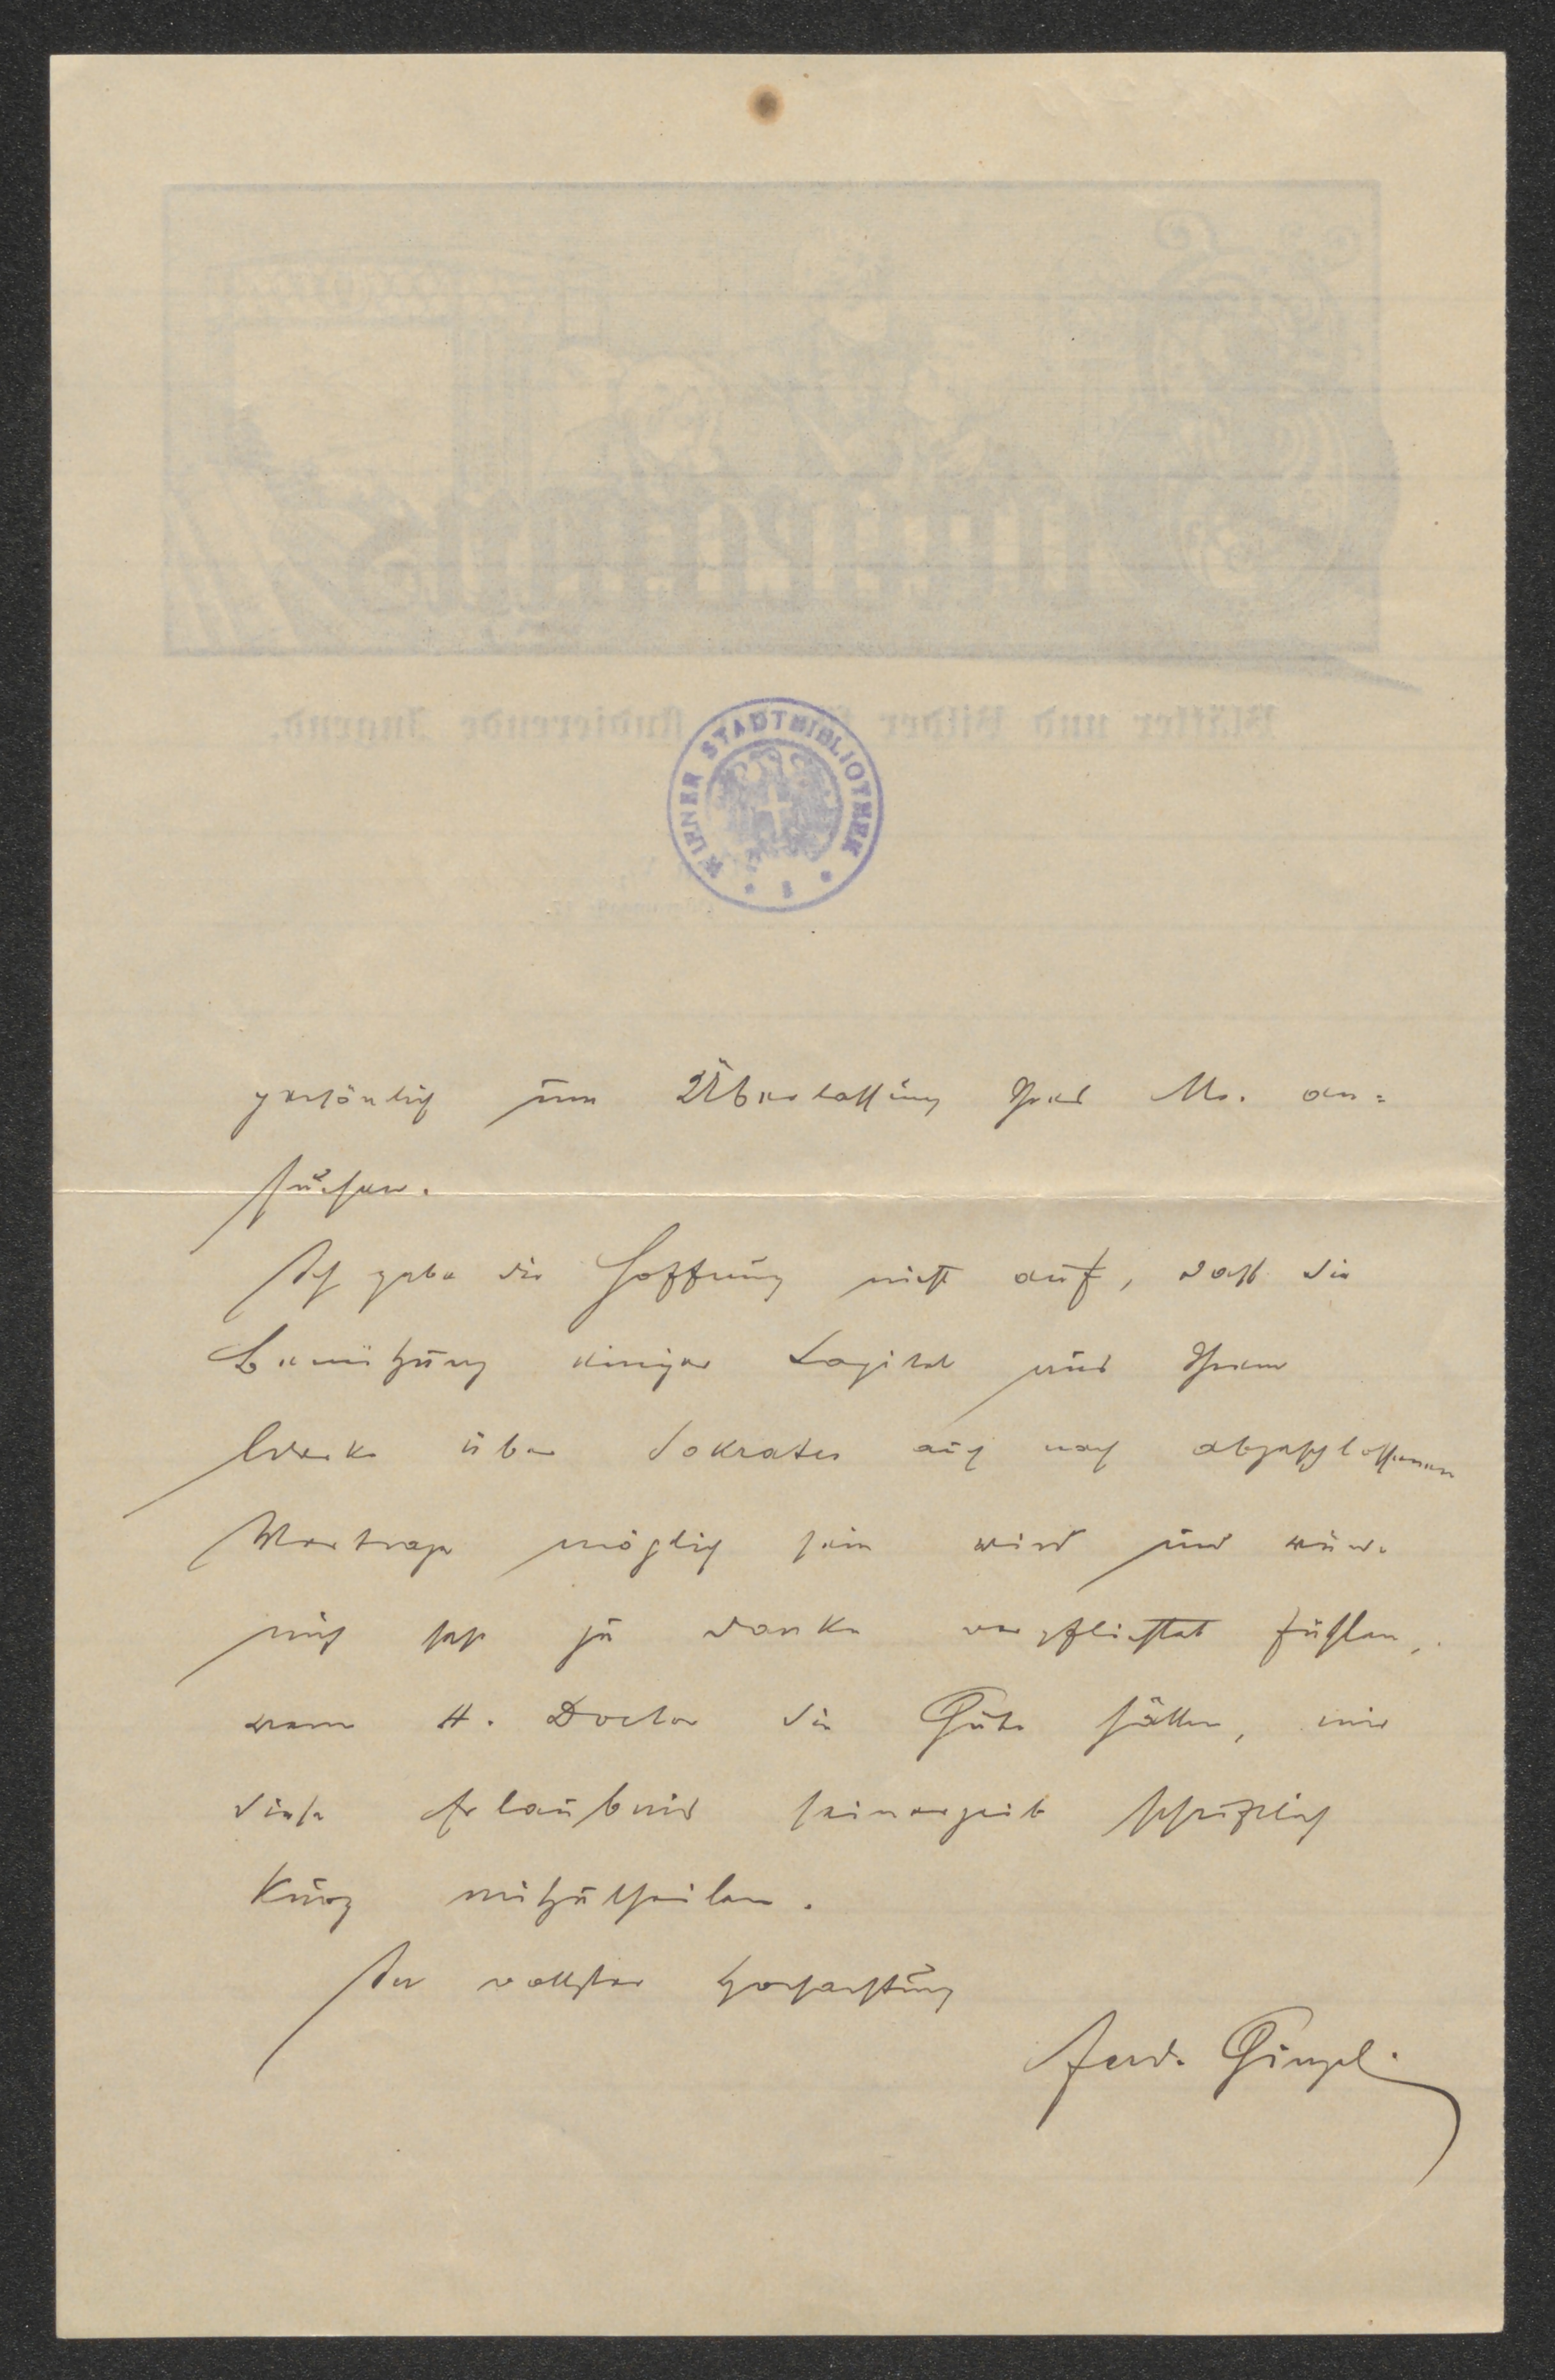 Blätter und Bilder für die studierende Jugend.
WIENER STADTBIBLIOTHEK
persönlich um Überlassung Ihres Ms. an=
suchen.
Ich gebe die Hoffnung nicht auf, dass die
Benützung einiger Kapitel aus Ihrem
Werke über Sokrates auch nach abgeschlossenem
Vertrage möglich sein wird und würde
mich sehr zu Danke verpflichtet fühlen,
wenn H. Doctor die Güte hätten, mir
diese Erlaubnis seinerzeit schriftlich
kurz mitzutheilen.
In vollster Hochachtung
Ferd. Ginzel.